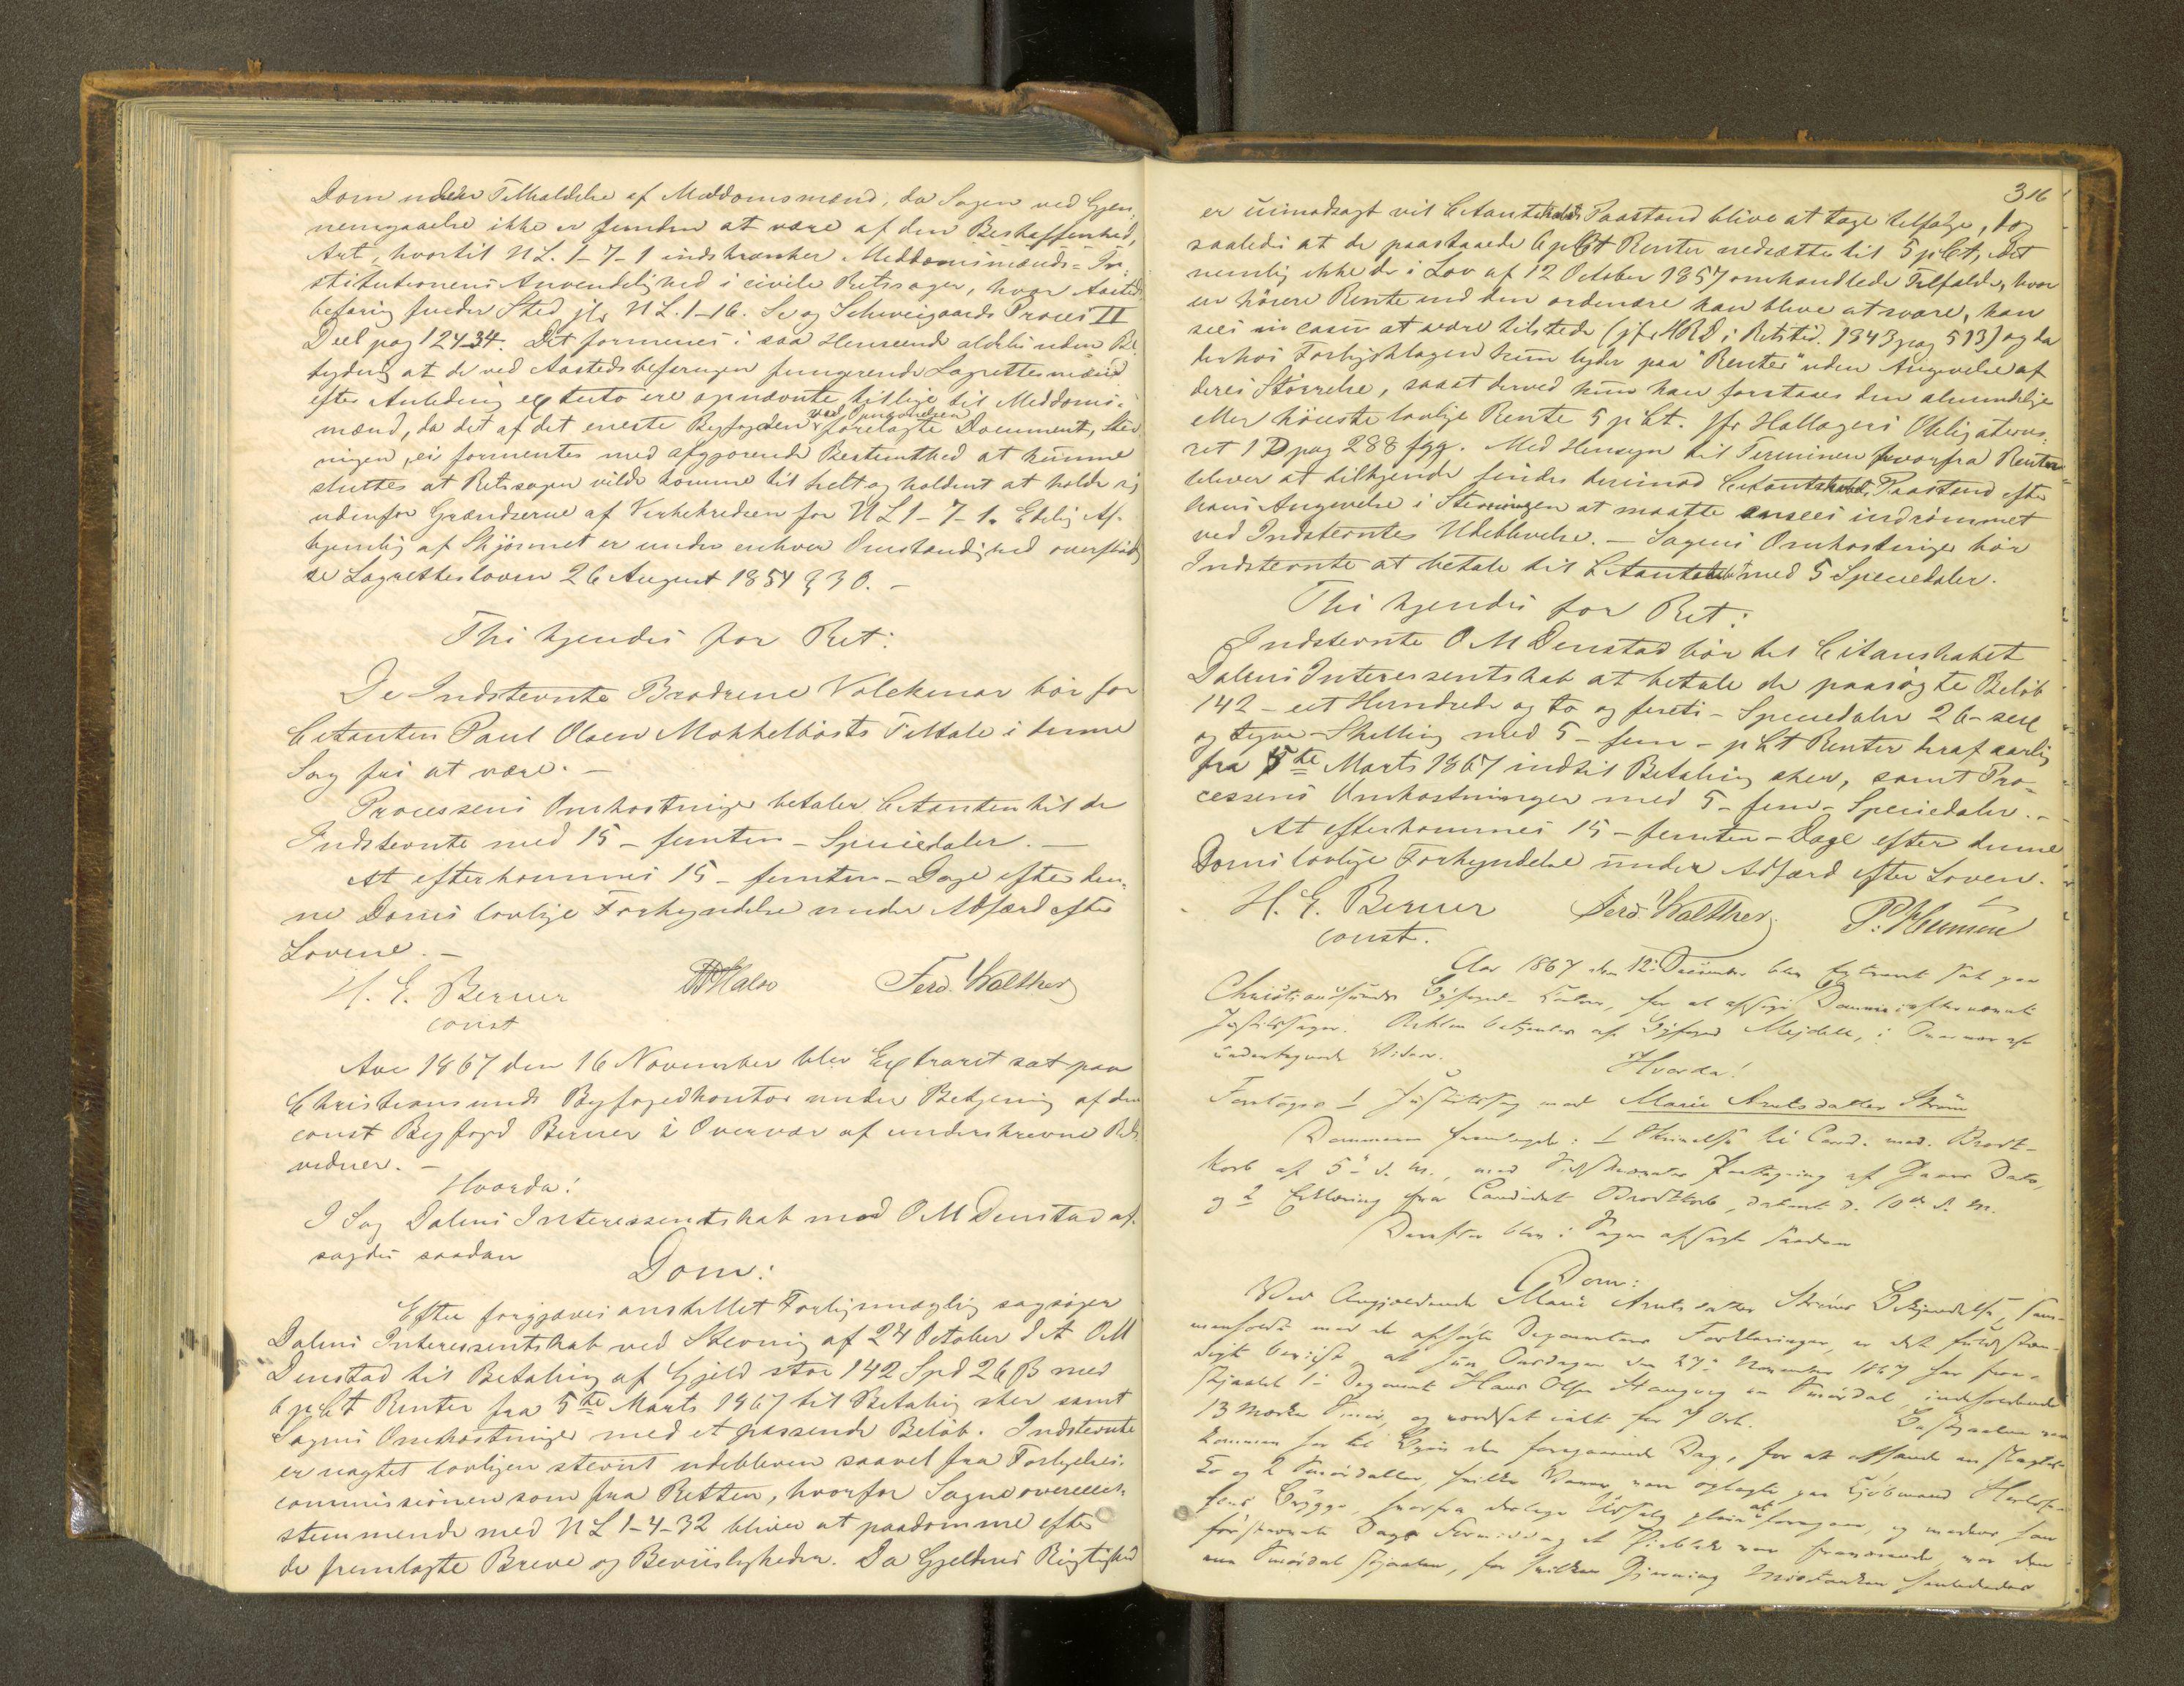 Dom uden Tilkaldelse af Meddomsmænd, da Sagen ved Gjen-
nemgaaelse ikke er funden at være af den Beskaffenhed,
Art, hvortil NL. 1-7-1 indskrænker Meddomsmænds-In-
stitutionens Anvendelighed i civile Retssager, hvor Aasteds
befaring finder Sted jfr NL. 1-16. Se og Schweigaards Proces II
Deel pag 124-34. Det formenes i saa Henseende aldeles uden Be-
tydning at de ved Aastedsbefaringen fungerende Lagrettesmænd
efter Anledning ex tuto ere opnævnte tillige til Meddoms-
mænd, da det af det eneste Byfogden ved Opnævnelsen forelagte Document, Stev-
ningen, ei formentes med afgjorende Bestemthed at kunne
sluttes at Retssagen vilde komme til helt og holdent at holde sig
udenfor Grændserne af Virkekredsen for NL 1-7-1. Edelig Af-
hjemling af Skjønnet er under enhver Omstændighed overflødig
se Lagretteloven 26 August 1854 § 30. -
Thi kjendes for Ret:
De Indstevnte Brødrene Volckmar bør for
Citanten Paul Olsen Mokkelbosts Tiltale i denne
Sag fri at være. -
Processens Omkostninger betaler Citanten til de
Indstevnte med 15 - femten - Speciedaler. -
At efterkommes 15 - femten - Dage efter den-
ne Doms lovlige Forkyndelse under Adfærd efter
Lovene. -
H. E. Berner Ferd. Walther
const
Aar 1867 den 16 November blev Extraret sat paa
Christiansunds Byfogedkontor under Betjening af den
const Byfoged Berner i Overvær af underskrevne Rets
vidner. -
Hvorda!
I Sag Dalens Interessentskab mod O M Denstad af-
sagdes saadan
Dom:
Efter forgjæves anstillet Forligsmægling sagsøger
Dalens Interessentskab ved Stevning af 24 October d A O M
Denstad til Betaling af Gjeld stor 142 Spd 26 ß med
6 pCt Renter fra 5te Marts 1867 til Betaling sker samt
Sagens Omkostninger med et passende Beløb. Indstevnte
er uagtet lovligen stevnt udebleven saavel fra Forligelses-
commissionen som fra Retten, hvorfor Sagen overeens-
stemmende med NL 1-4-32 bliver at paadømme efter
de fremlagte Breve og Beviisligheder. Da Gjeldens Rigtighed
316
er uimodsagt vil Citantskabets Paastand blive at tage tilfølge, dog
saaledes at de paastaaede 6 pCt Renter nedsættes til 5 pCt, idet
nemlig ikke de i Lov af 12 October 1857 omhandlede Tilfælde, hvor
en høiere Rente end den ordinære kan blive at svare, kan
sees in casu at være tilstede (jfr HRD i Retstid. 1843 pag 513) og da
derhos Forligsklagen kun lyder paa "Renter" uden Angivelse af
deres Størrelse, saaat derved kun kan forstaaes den almindelige
eller høieste lovlige Rente 5 pCt. Jfr Hallagers Obligations-
ret 1 D pag 288 fgg. Med Hensyn til Terminen hvorfra Renter
bliver at tilkjende findes derimod Citantskabets Paastand efter
hans Angivelse i Stevningen at maatte ansees indrømmet
ved Indstevntes Udeblivelse. - Sagens Omkostninger bør
Indstevnte at betale til Citantskabet med 5 Speciedaler.
Thi kjendes for Ret:
Indstevnte O M Denstad bør til Citantskabet
Dalens Interessentskab at betale de paasøgte Beløb
142 - eet Hundrede og to og firti - Speciedaler 26 - sex
og tyve - Skilling med 5 - fem - pCt Renter heraf aarlig
fra 5te Marts 1867 indtil Betaling sker, samt Pro-
cessens Omkostninger med 5 - fem - Speciedaler. -
At efterkommes 15 - femten - Dage efter denne
Doms lovlige Forkyndelse under Adfærd efter Loven.
H. E. Berner Ferd. Walther
const.
Aar 1867 den 12te December blev Extraret sat paa
Christianssunds Byfoged-Contor, for at afsige Domme i efternævnte
Justitssager. Retten betjentes af Byfoged Mejdell, i Overvær af
undertegnede Vidner.
Hvorda!
Foretoges 1 Justitssag mod Marie Arntsdatter Strøm
Dommeren fremlagde: 1 Skrivelse til Cand. med. Brodt-
korb af 5te d. M., med Paategning af Dato,
og 2 Erklæring fra Candidat Brodtkorb, dateret d. 10de d. M.
Derefter blev i Sagen afsagt saadan
Dom:
Ved Angjeldende Marie Arntsdatter Strøms Bekjendelse, sam-
menholdt med de afhørte Deponenters Forklaringer, er det fuldstæn-
digt beviist, at hun Onsdagen den 27de November 1867 har fra-
stjaalet 1ste Deponent Hans Olsen Haugvig en Smørdal, indeholdende
13 Marker Smør, og værdsat ialt for 7 Ort. Bestjaalne var
kommen her til Byen den foregaaende Dag, for at afhænde en slagtet
Ko og 2 Smørdaller, hvilke Varer var oplagte paa Kjøbmand
sens Brygge, hvorfra deslige Udsalg pleie at foregaae, og medens han
førstnævnte Dags Formiddag et Øieblik var fraværende, var den
ene Smørdal stjaalen, for hvilken Gjerning Mistanken henlededes